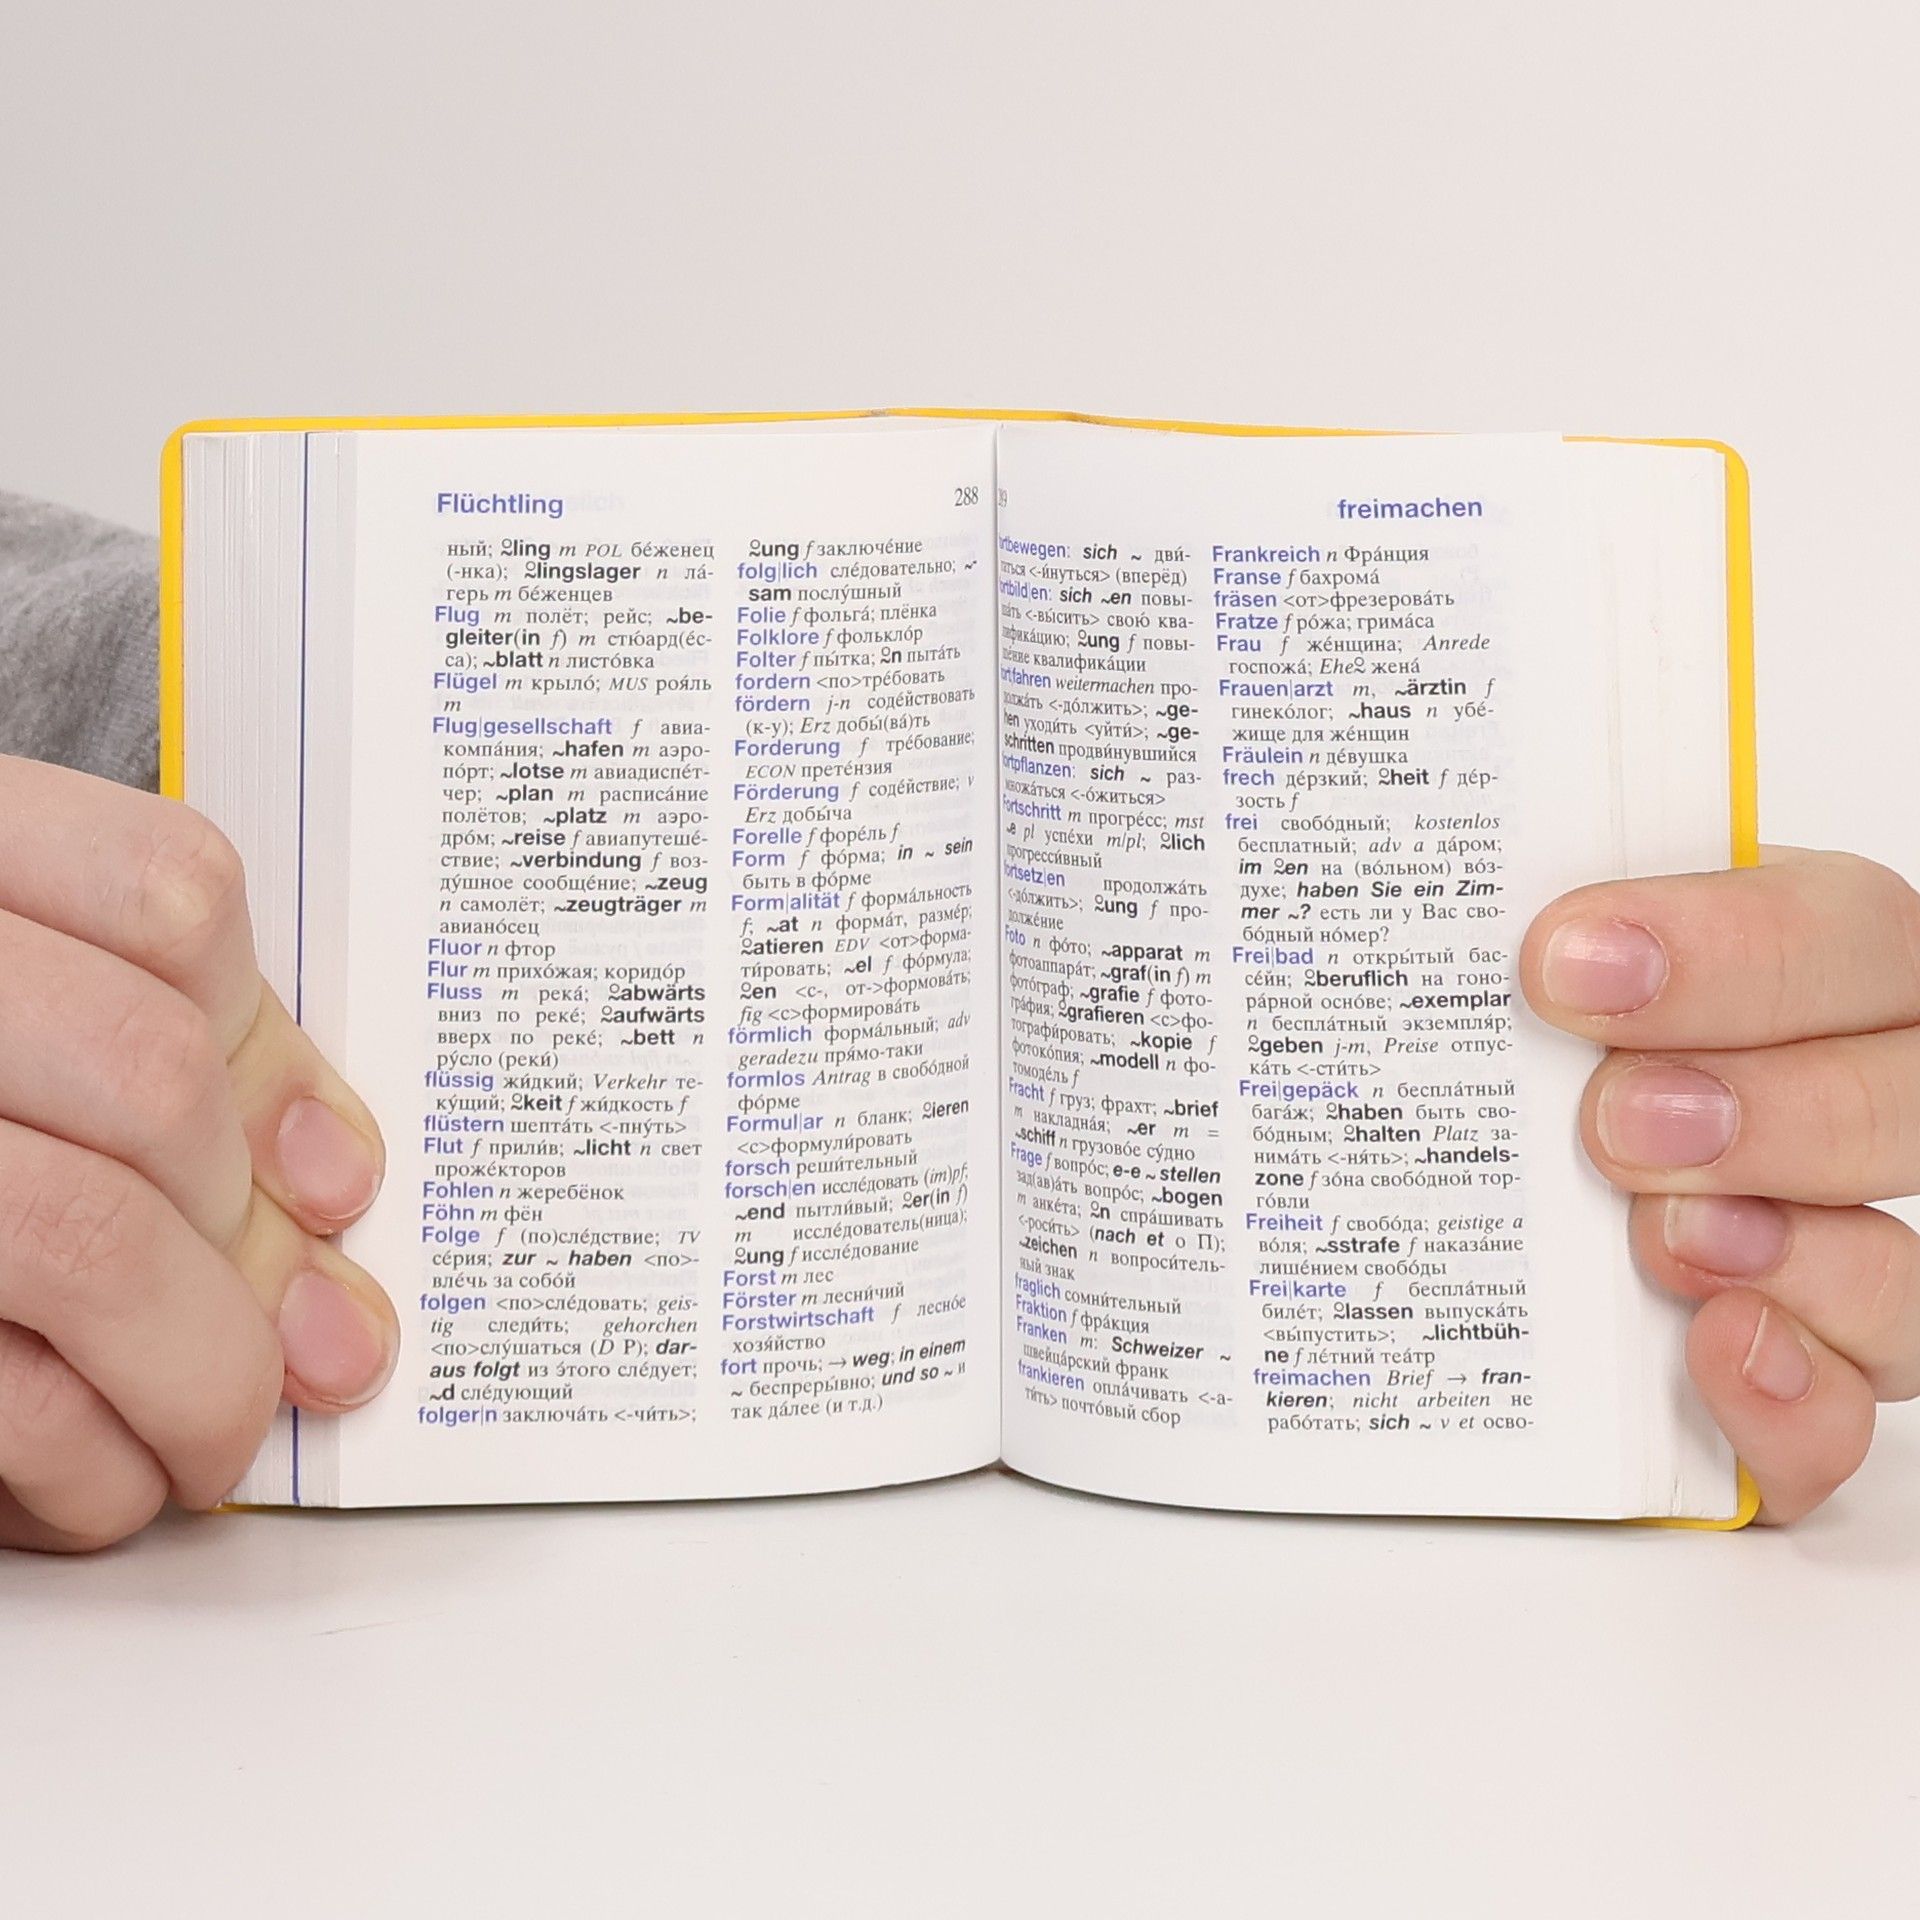 Flüchtling
288
ный; ☊ling m POL бе́женец
(-нка); ☊lingslager n ла́-
герь m бе́женцев
Flug m полёт; рейс; ~be-
gleiter(in f) m стю́ард(е́с-
са); ~blatt n листо́вка
Flügel m крыло́; MUS роя́ль
m
Flug|gesellschaft f авиа-
компа́ния; ~hafen m аэро-
по́рт; ~lotse m авиадиспе́т-
чер; ~plan m расписа́ние
полётов; ~platz m аэро-
дро́м; ~reise f авиапутеше́-
ствие; ~verbindung f воз-
ду́шное сообще́ние; ~zeug
n самолёт; ~zeugträger m
авиано́сец
Fluor n фтор
Flur m прихо́жая; коридо́р
Fluss m река́; ☊abwärts
вниз по реке́; ☊aufwärts
вверх по реке́; ~bett n
ру́сло (реки́)
flüssig жи́дкий; Verkehr те-
ку́щий; ☊keit f жи́дкость f
flüstern шепта́ть <-пну́ть>
Flut f прили́в; ~licht n свет
проже́кторов
Fohlen n жеребёнок
Föhn m фён
Folge f (по)сле́дствие; TV
се́рия; zur ~ haben <по>-
вле́чь за собо́й
folgen <по>сле́довать; geis-
tig следи́ть; gehorchen
<по>слу́шаться (D P); dar-
aus folgt из э́того сле́дует;
~d сле́дующий
folger|n заключа́ть <-чи́ть>;
☊ung f заключе́ние
folg|lich сле́довательно; ~-
sam послу́шный
Folie f фольга́; плёнка
Folklore f фолькло́р
Folter f пы́тка; ☊n пыта́ть
fordern <по>тре́бовать
fördern j-n соде́йствовать
(к-у); Erz добы́(ва́)ть
Forderung f тре́бование;
ECON прете́нзия
Förderung f соде́йствие; v
Erz добы́ча
Forelle f форе́ль f
Form f фо́рма; in ~ sein
быть в фо́рме
Form|alität f форма́льность
f; ~at n форма́т, разме́р;
☊atieren EDV <от>форма-
ти́ровать; ~el f фо́рмула;
☊en <с-, от->формова́ть;
fig <с>формирова́ть
förmlich форма́льный; adv
geradezu пря́мо-таки
formlos Antrag в свобо́дной
фо́рме
Formul|ar n бланк; ☊ieren
<с>формули́ровать
forsch реши́тельный
forsch|en иссле́довать (im)pf;
~end пытли́вый; ☊er(in f)
m иссле́дователь(ница);
☊ung f иссле́дование
Forst m лес
Förster m лесни́чий
Forstwirtschaft f лесно́е
хозя́йство
fort прочь; → weg; in einem
~ беспреры́вно; und so ~ и
так да́лее (и т.д.)
freimachen
sich ~ дви́-
<-и́нуться> (вперёд)
sich ~en повы-
<-вы́сить> свою́ ква-
☊ung f повы-
квалифика́ции
weitermachen про-
<-до́лжить>; ~ge-
уходи́ть <уйти́>; ~ge-
schritten продви́нувшийся
sich ~ раз-
<-о́житься>
Fortschritt m прогре́сс; mst
~e pl успе́хи m/pl; ☊lich
прогресси́вный
продолжа́ть
<-до́лжить>; ☊ung f про-
должéние
Foto n фо́то; ~apparat m
фотоаппара́т; ~graf(in f) m
фото́граф; ~grafie f фото-
гра́фия; ☊grafieren <с>фо-
тографи́ровать; ~kopie f
фотоко́пия; ~modell n фо-
томоде́ль f
Fracht f груз; фрахт; ~brief
m накладна́я; ~er m =
~schiff n грузово́е су́дно
Frage f вопро́с; e-e ~ stellen
зад(ав)а́ть вопро́с; ~bogen
m анке́та; ☊n спра́шивать
<-роси́ть> (nach et о П);
~zeichen n вопроси́тель-
ный знак
fraglich сомни́тельный
Fraktion f фра́кция
Franken m: Schweizer ~
швейца́рский франк
frankieren опла́чивать <-а-
ти́ть> почто́вый сбор
Frankreich n Фра́нция
Franse f бахрома́
fräsen <от>фрезерова́ть
Fratze f ро́жа; грима́са
Frau f же́нщина; Anrede
госпожа́; Ehe☊ жена́
Frauen|arzt m, ~ärztin f
гинеко́лог; ~haus n убе́-
жище для же́нщин
Fräulein n де́вушка
frech де́рзкий; ☊heit f де́р-
зость f
frei свобо́дный; kostenlos
бесплатный; adv a да́ром;
im ☊en на (во́льном) во́з-
духе; haben Sie ein Zim-
mer ~? есть ли у Вас сво-
бо́дный но́мер?
Frei|bad n откры́тый бас-
се́йн; ☊beruflich на гоно-
ра́рной осно́ве; ~exemplar
n беспла́тный экземпля́р;
☊geben j-m, Preise отпус-
ка́ть <-сти́ть>
Frei|gepäck n беспла́тный
бага́ж; ☊haben быть сво-
бо́дным; ☊halten Platz за-
нима́ть <-ня́ть>; ~handels-
zone f зо́на свобо́дной тор-
го́вли
Freiheit f свобо́да; geistige a
во́ля; ~sstrafe f наказа́ние
лише́нием свобо́ды
Frei|karte f беспла́тный
биле́т; ☊lassen выпуска́ть
<вы́пустить>; ~lichtbüh-
ne f ле́тний теа́тр
freimachen Brief → fran-
kieren; nicht arbeiten не
рабо́тать; sich ~ v et осво-